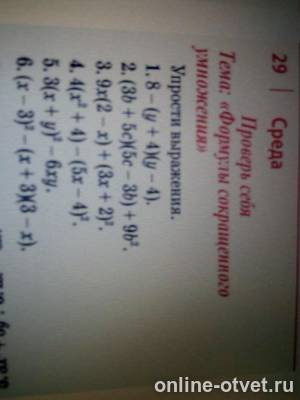 29 | Среда
Проверь себя
Тема: «Формулы сокращённого
умножения»
Упрости выражения.
1. 8 – (y + 4)(y – 4).
2. (3b + 5c)(5c – 3b) + 9b².
3. 9x(2 – x) + (3x + 2)².
4. 4(x² + 4) – (5x – 4)².
5. 3(x + y)² – 6xy.
6. (x – 3)² – (x + 3)(3 – x).
online-otvet.ru